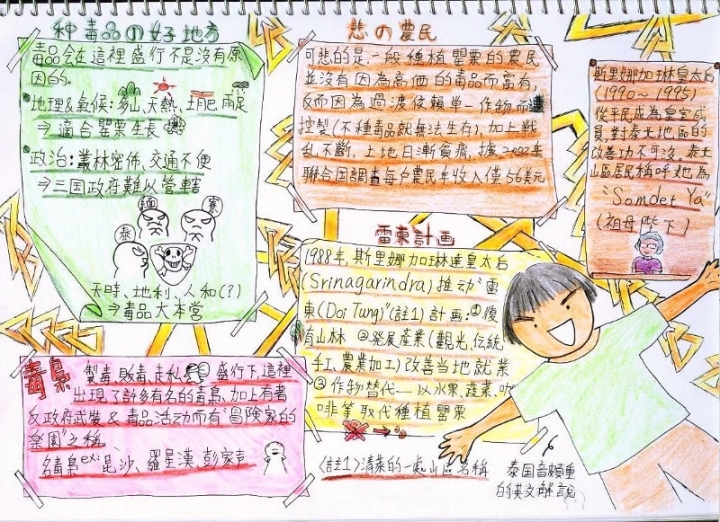 種毒品の好地方
毒品会在這裡盛行不是沒有原
因的.
地理&氣候:多山、天熱、土肥、雨足
⇒適合罌粟生長
政治:叢林密佈、交通不便
⇒三国政府難以管轄
緬
寮
泰
天時、地利、人和(?)
⇒毒品大本営
悲の農民
可悲的是,一般種植罌粟的農民
並沒有因為高価的毒品而富有,
反而因為過渡依賴單一作物而遭
控製(不種毒品就無法生存),加上戰
乱不斷,土地日漸貧瘠,據2002年
聯合国調查每户農民年收入僅56美元
斯里娜加琳皇太后
(1990~1995)
從平民成為皇室成
員,對泰北地區的
改善功不可沒.泰北
山區居民稱呼她為
"Somdet Ya"
(祖母陛下)
雷東計画
1988年,斯里娜加琳達皇太后
(Srinagarindra)推动"雷
東(Doi Tung)"(註1)計画:①復
育山林 ②発展產業(觀光、伝統
手工、農業加工)改善当地就業
③作物替代—以水果、蔬菜、咖
啡等取代種植罌粟
<註1>清萊的一處山區名稱
毒梟
製毒、販毒、走私 盛行下,這裡
出現了許多有名的毒梟,加上有著
反政府武裝&毒品活动而有"冒険家的
楽園"之稱.
名毒梟ex:昆沙、羅星漢、彭家声
泰国音頗重
的英文解說